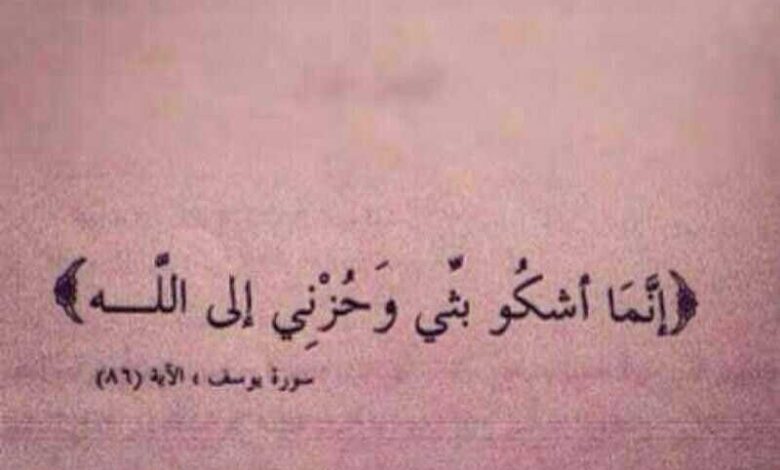 ﴿إنَّمَا أشكُو بثِّي وَحُزْنِي إلى اللَّـــه﴾
سورة يوسف ، الآية (٨٦)